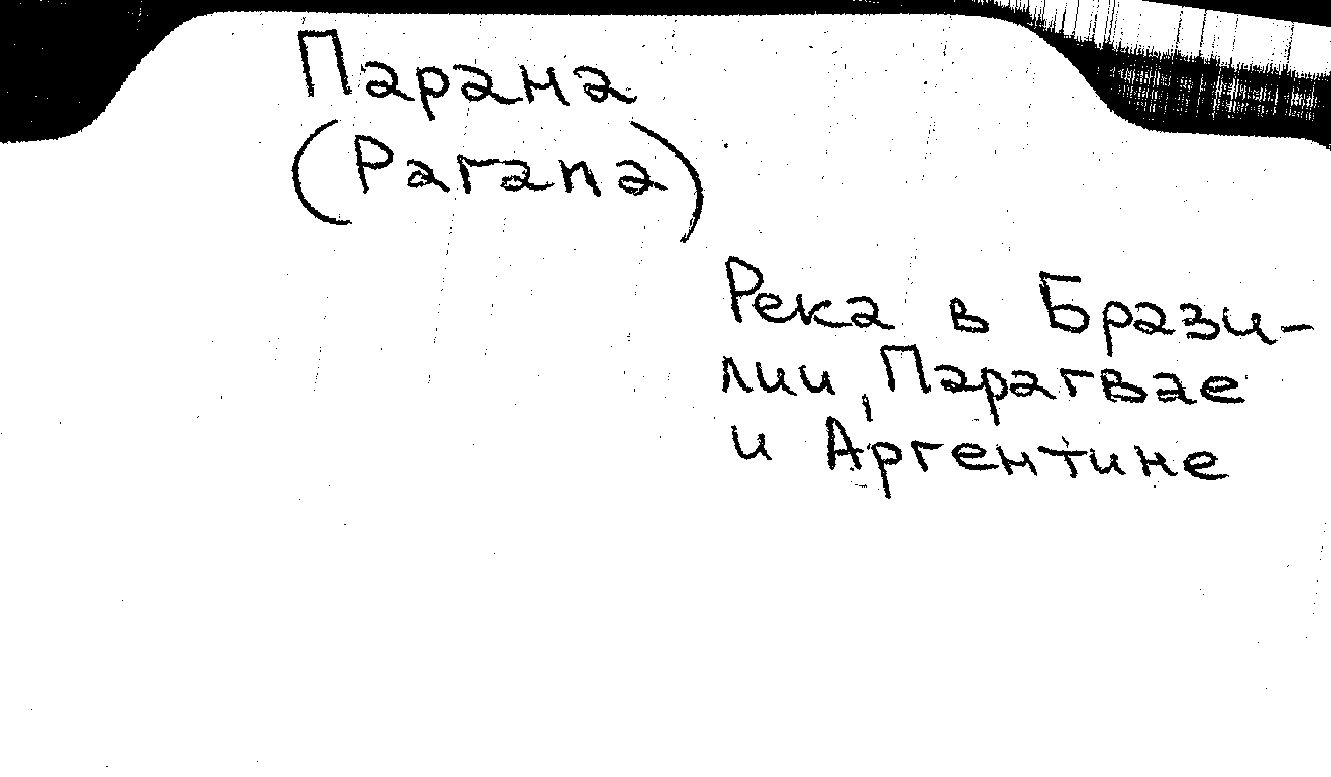 Парана
(Parana)
Река в Брази-
лии, Парагвае
и Аргентине